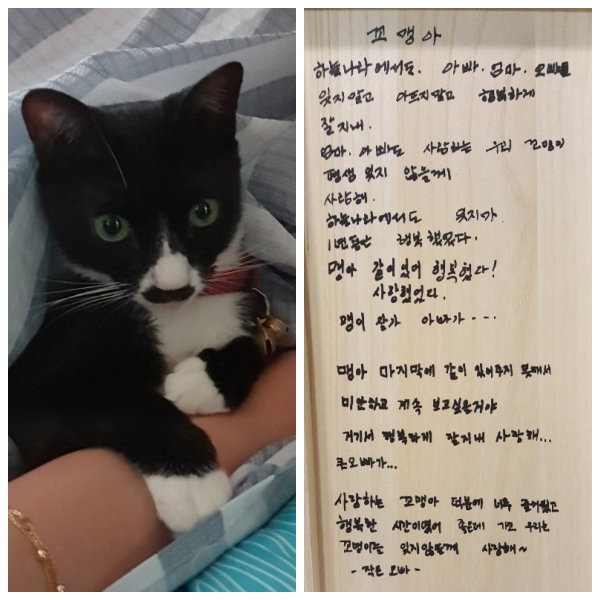 꼬맹아
하늘나라에서도. 아빠. 엄마. 오빠들
잊지말고 아프지말고 행복하게
잘지내.
엄마. 아빠도 사랑하는 우리 꼬맹이
평생 잊지 않을게!
사랑해.
하늘나라에서도 잊지마
1년동안 행복했었다.
맹아 같이있어 행복했다!
사랑했었다.
맹이 잘가 아빠가 - - -
맹아 마지막에 같이 있어주지 못해서
미안하고 계속 보고싶을거야
거기서 행복하게 잘지내 사랑해...
큰오빠가...
사랑하는 꼬맹아 덕분에 너무 즐거웠고
행복한 시간이였어 좋은데 가고 우리는
꼬맹이는 잊지않을게 사랑해~
- 작은 오빠 -